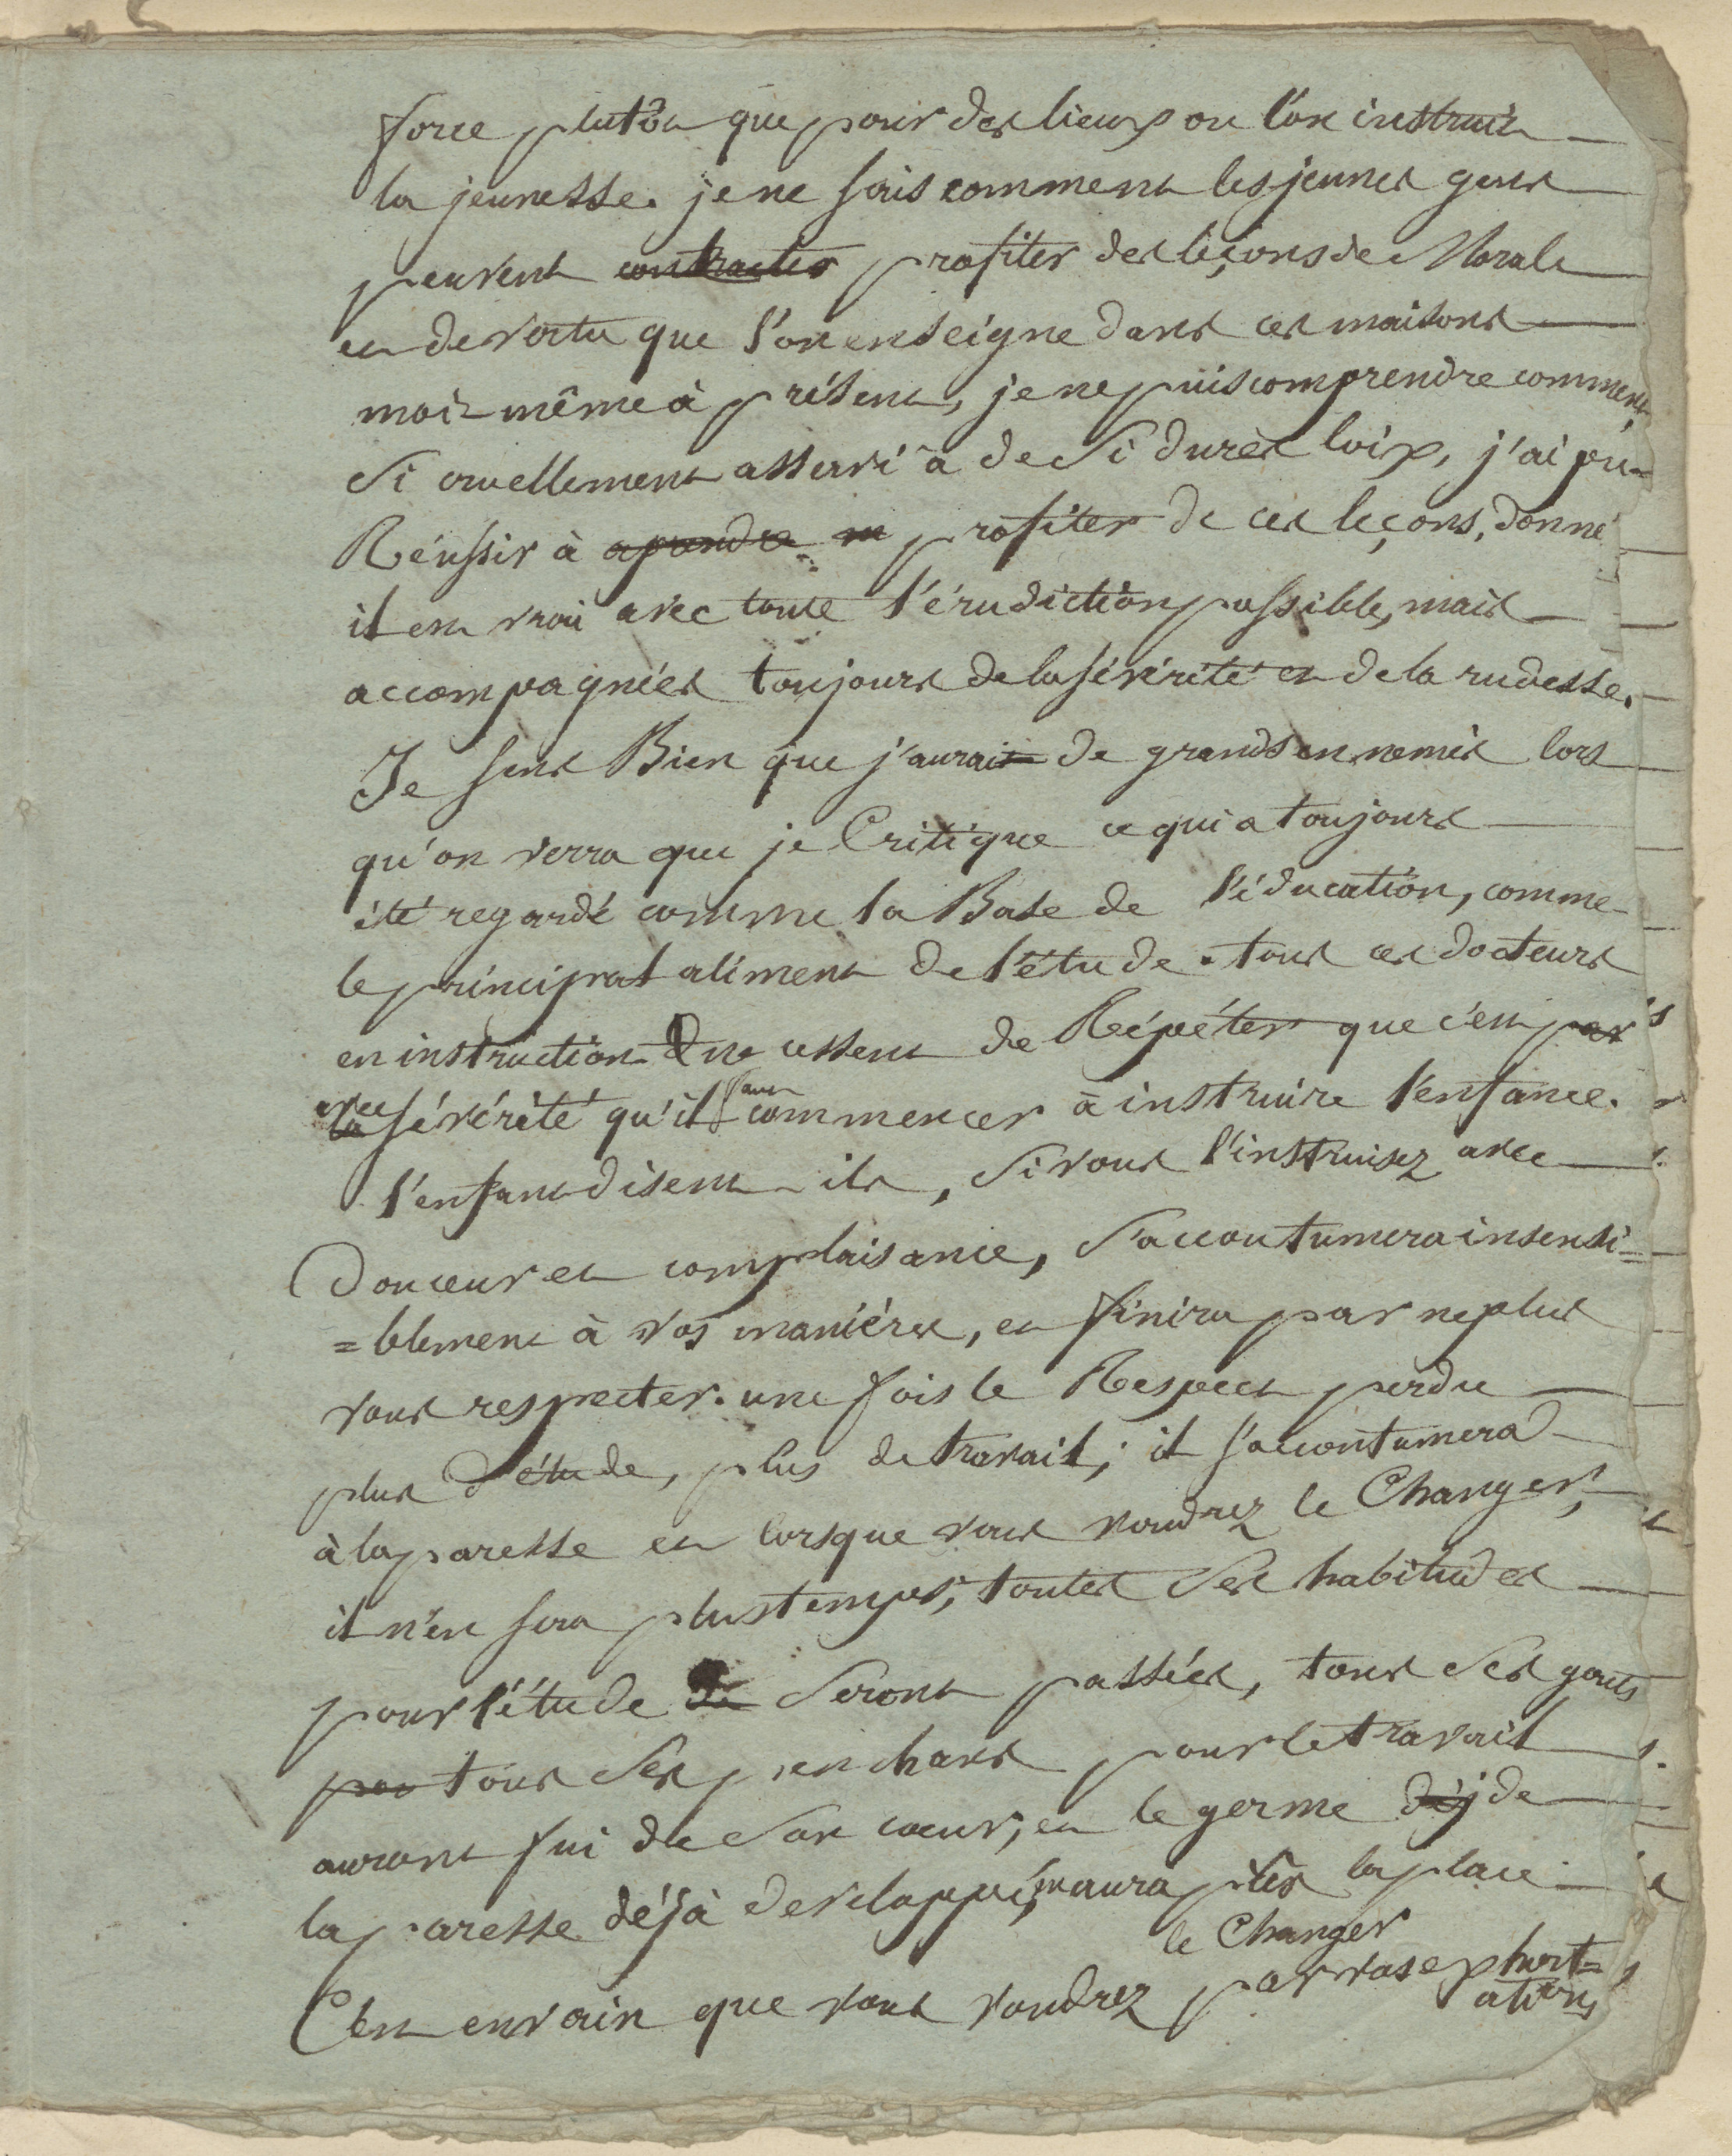 force plutôt que pour des lieux ou l'on instruit
la jeunesse. je ne sais comment les jeunes gens
peuvent contracter profiter des leçons de Morale
et de vertu que l'on enseigne dans ces maisons
moi-même à présent, je ne puis comprendre comment
si cruellement asservi à de si dures loix, j'ai pu
Réussir à aprendre profiter de ces leçons, donné
il est vrai avec toute l'érudiction possible, mais
accompagnées toujours de la sévérité et de la rudesse.
Je sens Bien que j'aurai de grands ennemis lors
qu'on verra que je Critique ce qui a toujours
été regardé comme la Base de l'éducation, comme
le principal aliment de l'étude. tous ces docteurs
en instruction ne cessent de Répéter que c'est par
avec
la sévérité qu'il faut commencer à instruire l'enfance.
l'enfant disent-ils, si vous l'instruisez avec
Douceur et complaisance, s'accoutumera insensi=
=blement à vos maniéres, et finira par ne plus
vous respecter. une fois le Respect perdu
plus d'étude, plus de travail; il s'accoutumera
à la paresse et lorsque vous voudrez le Changer,
il n'en sera plus temps, toutes ses habitudes
pour l'étude seront passées, tous ses gouts
pou tous ses penchans pour le travail
auront fui de son cœur, et le germe déj de
la paresse déjà développé, aura pris la place
le Changer
C'est envain que vous voudrez par vos exphort=
ations